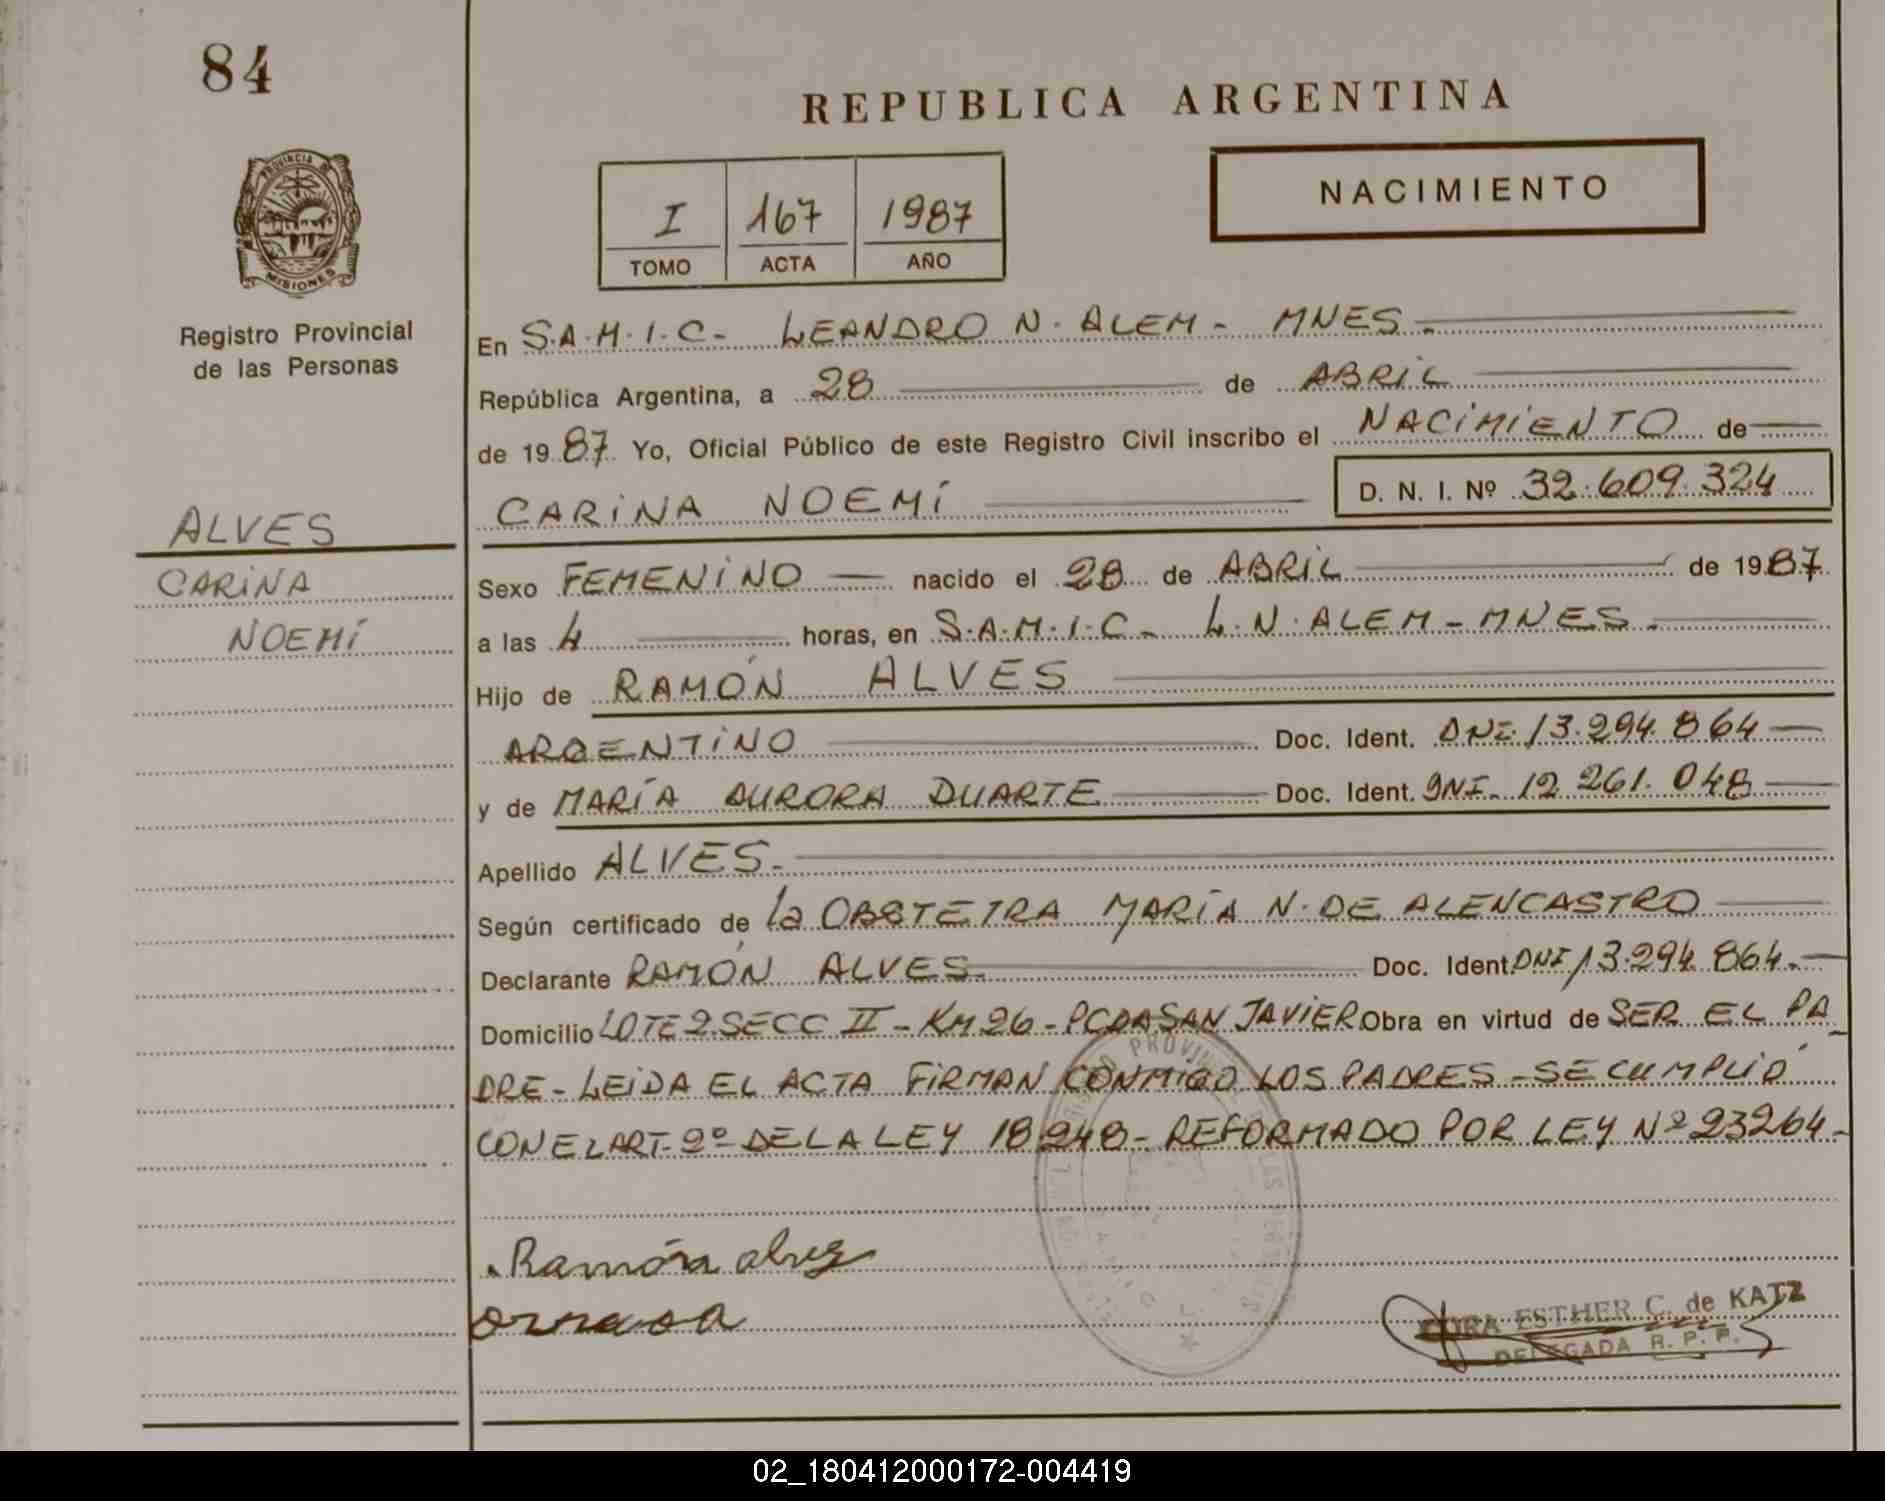 84
REPUBLICA ARGENTINA
PROVINCIA DE
MISIONES
Registro Provincial
de las Personas
I 167 1987
TOMO ACTA AÑO
NACIMIENTO
En S.A.M.I.C- LEANDRO N. ALEM - MNES.
República Argentina, a 28 de ABRIL
de 1987 Yo, Oficial Público de este Registro Civil inscribo el NACIMIENTO de
CARINA NOEMÍ D. N. I. Nº 32.609.324
ALVES
CARINA
NOEMÍ
Sexo FEMENINO nacido el 28 de ABRIL de 1987
a las 4 horas, en S.A.M.I.C- L.N.ALEM-MNES.
Hijo de RAMÓN ALVES
ARGENTINO Doc. Ident. DNI 13.294.864
y de MARÍA AURORA DUARTE Doc. Ident. DNI- 12.261.048
Apellido ALVES.
Según certificado de la OBSTETRA MARÍA N. DE ALENCASTRO
Declarante RAMÓN ALVES Doc. Ident. DNI 13.294.864.
Domicilio LOTE 2 SECC II - KM 26 - PCDA SAN JAVIER Obra en virtud de SER EL PA
DRE - LEIDA EL ACTA FIRMAN CONMIGO LOS PADRES - SE CUMPLIÓ
CON EL ART. 2º DE LA LEY 18248 - REFORMADO POR LEY Nº 23264 -
Ramón alves
ESTHER C. de KATZ
DELEGADA R. P. P.
02_180412000172-004419